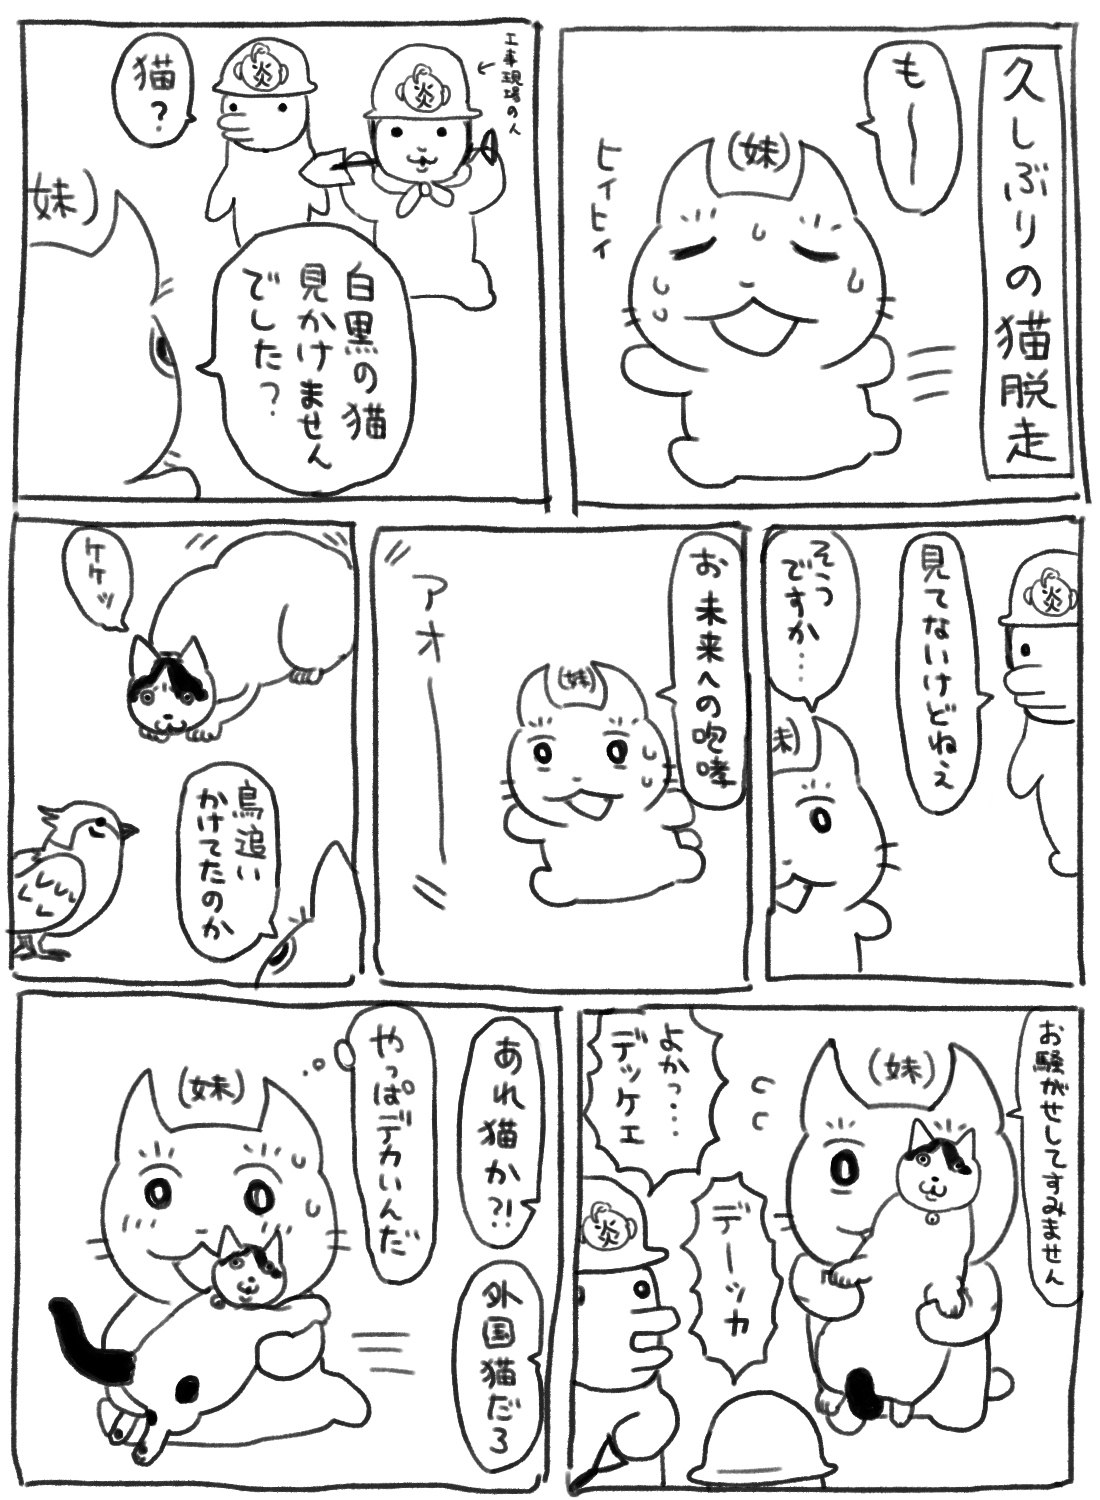 久しぶりの猫脱走
も〜
(妹)
ヒィヒィ
工事現場の人
炎
炎
猫?
白黒の猫
見かけません
でした?
妹)
炎
見てないけどねぇ
そう
ですか…
未)
お未来への咆哮
(妹)
アオー
ケケッ
鳥追い
かけてたのか
お騒がせしてすみません
(妹)
よかっ…
デッケエ
デーッカ
炎
あれ猫か?!
外国猫だろ
やっぱデカいんだ
(妹)